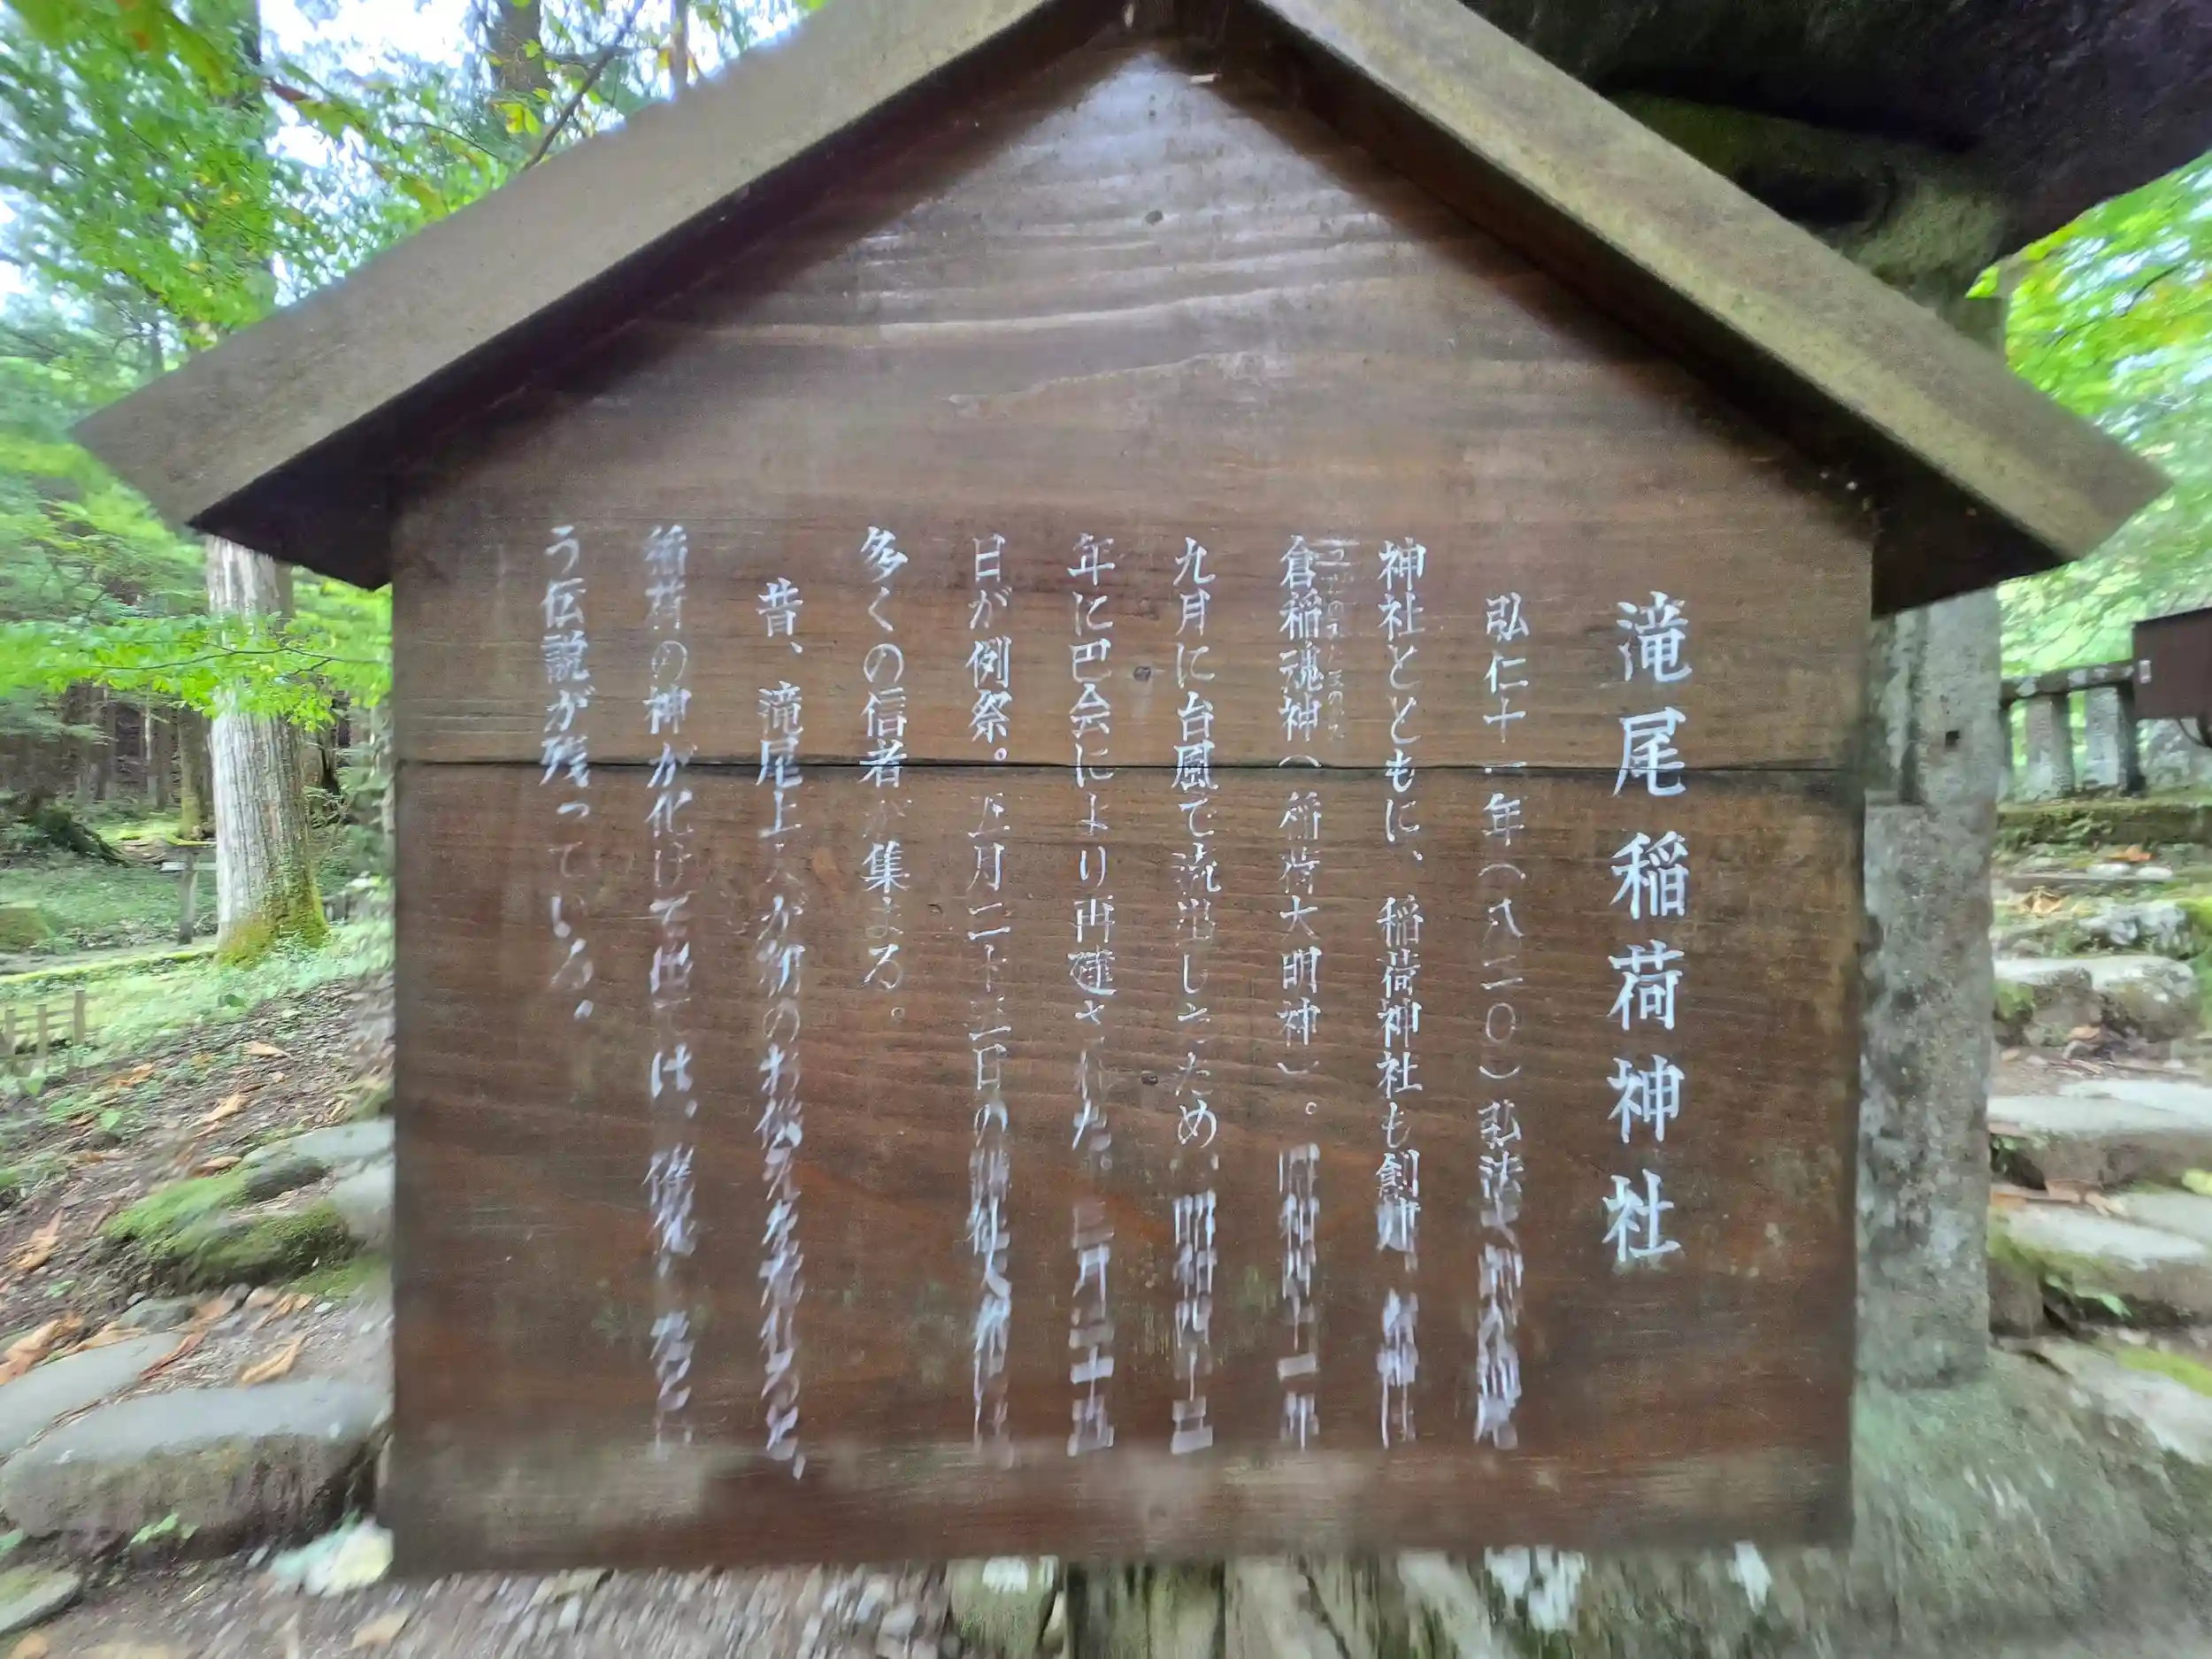 滝尾稲荷神社
弘仁十一年(八二〇)弘法大師が滝尾
神社とともに、稲荷神社も創建、祭神は
倉稲魂神(稲荷大明神)。昭和四十一年
九月に台風で流出したため、昭和四十三
年に巴会により再建された。三月二十五
日が例祭。五月二十三日の
多くの信者が集まる。
昔、滝尾上人が朝のお供えを忘れると、
稲荷の神が化けて出ては、催促
う伝説が残っている。